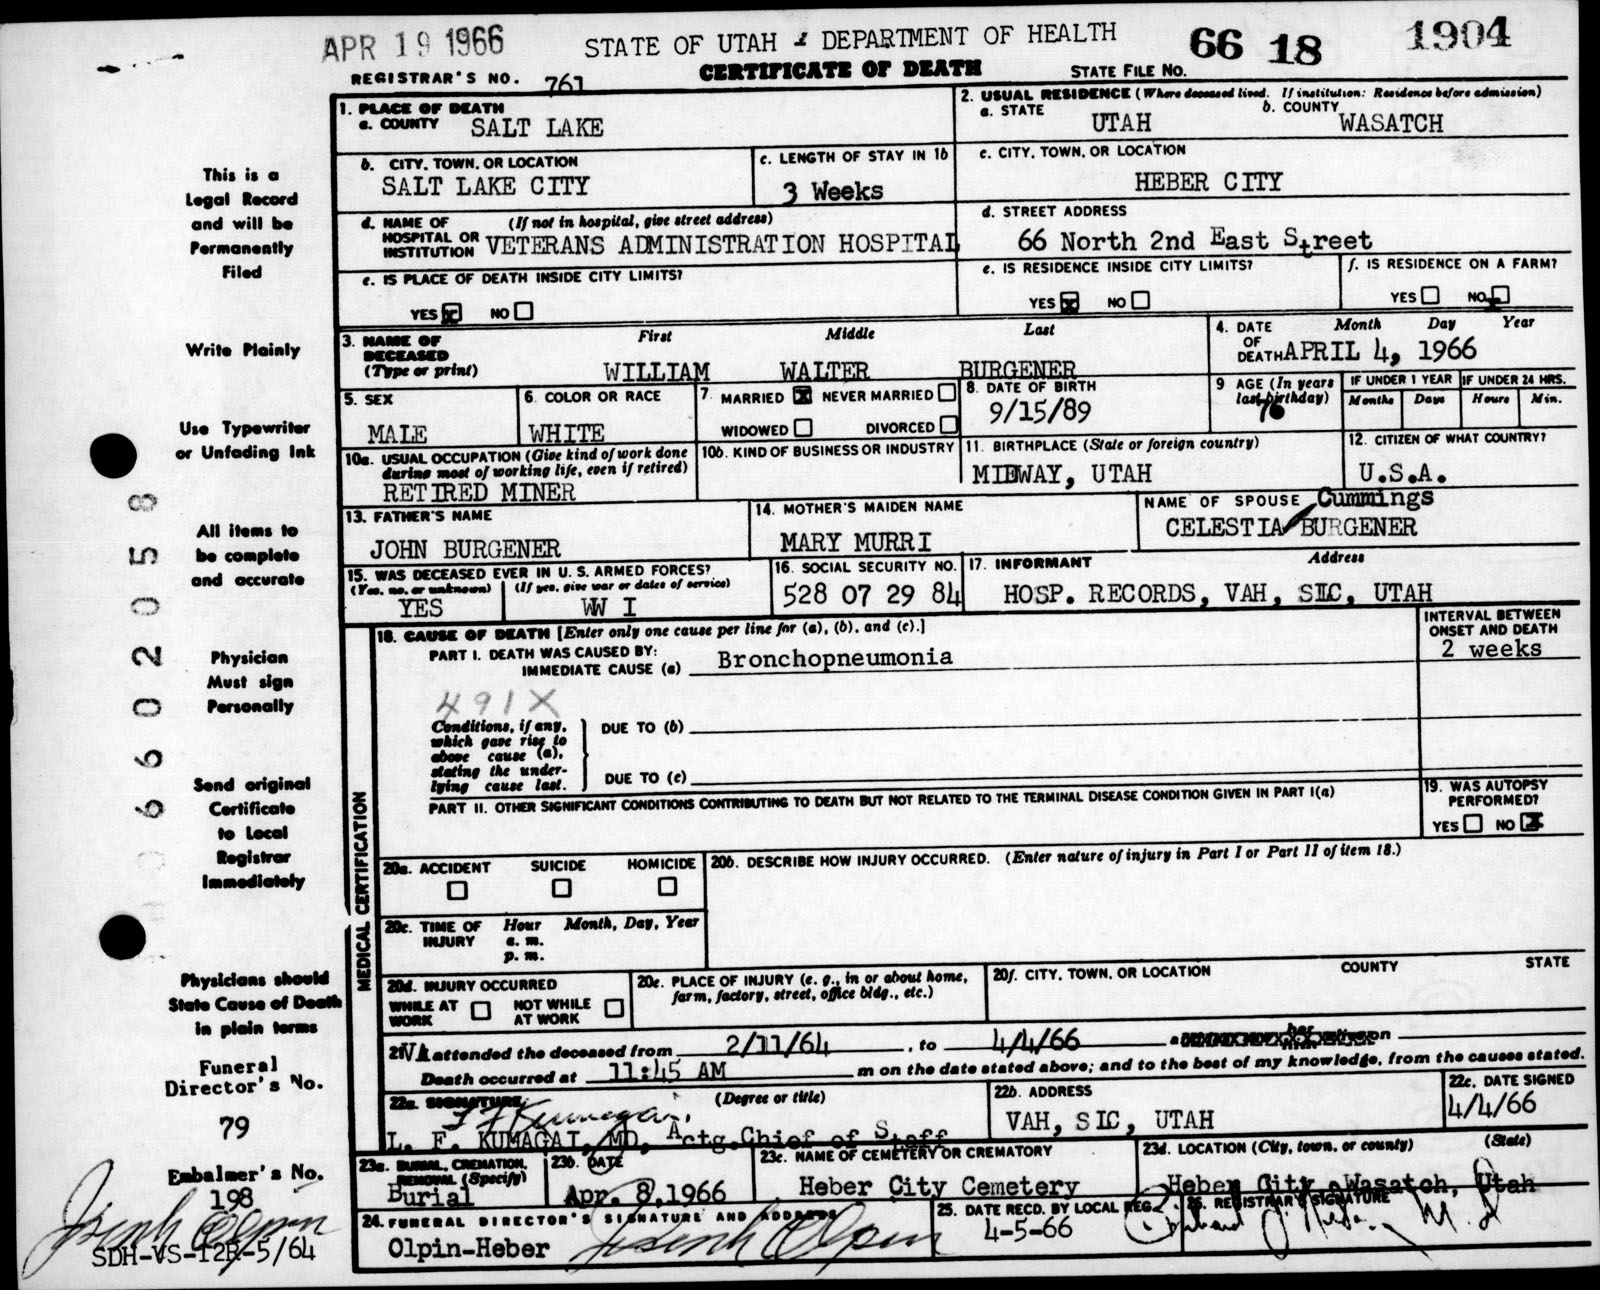 APR 19 1966
STATE OF UTAH - DEPARTMENT OF HEALTH
66 18 1904
CERTIFICATE OF DEATH
REGISTRAR'S NO. 761
STATE FILE NO.
1. PLACE OF DEATH
a. COUNTY SALT LAKE
2. USUAL RESIDENCE (Where deceased lived. If institution: Residence before admission)
a. STATE UTAH b. COUNTY WASATCH
b. CITY, TOWN, OR LOCATION
SALT LAKE CITY
c. LENGTH OF STAY IN 1b
3 Weeks
c. CITY, TOWN, OR LOCATION
HEBER CITY
d. NAME OF HOSPITAL OR INSTITUTION (If not in hospital, give street address)
VETERANS ADMINISTRATION HOSPITAL
d. STREET ADDRESS
66 North 2nd East Street
e. IS PLACE OF DEATH INSIDE CITY LIMITS?
YES x NO
e. IS RESIDENCE INSIDE CITY LIMITS?
YES x NO
f. IS RESIDENCE ON A FARM?
YES NO
3. NAME OF DECEASED (Type or print)
First Middle Last
WILLIAM WALTER BURGENER
4. DATE OF DEATH Month Day Year
APRIL 4, 1966
5. SEX
MALE
6. COLOR OR RACE
WHITE
7. MARRIED x NEVER MARRIED
WIDOWED DIVORCED
8. DATE OF BIRTH
9/15/89
9 AGE (In years last birthday)
76
IF UNDER 1 YEAR
Months Days
IF UNDER 24 HRS.
Hours Min.
10a. USUAL OCCUPATION (Give kind of work done during most of working life, even if retired)
RETIRED MINER
10b. KIND OF BUSINESS OR INDUSTRY
11. BIRTHPLACE (State or foreign country)
MIDWAY, UTAH
12. CITIZEN OF WHAT COUNTRY?
U.S.A.
13. FATHER'S NAME
JOHN BURGENER
14. MOTHER'S MAIDEN NAME
MARY MURRI
NAME OF SPOUSE Cummings
CELESTIA BURGENER
15. WAS DECEASED EVER IN U. S. ARMED FORCES?
(Yes, no, or unknown) (If yes, give war or dates of service)
YES WW I
16. SOCIAL SECURITY NO.
528 07 29 84
17. INFORMANT Address
HOSP. RECORDS, VAH, SLC, UTAH
MEDICAL CERTIFICATION
18. CAUSE OF DEATH [Enter only one cause per line for (a), (b), and (c).]
INTERVAL BETWEEN ONSET AND DEATH
PART I. DEATH WAS CAUSED BY:
IMMEDIATE CAUSE (a) Bronchopneumonia
2 weeks
491X
Conditions, if any, which gave rise to above cause (a), stating the underlying cause last.
DUE TO (b)
DUE TO (c)
PART II. OTHER SIGNIFICANT CONDITIONS CONTRIBUTING TO DEATH BUT NOT RELATED TO THE TERMINAL DISEASE CONDITION GIVEN IN PART I(a)
19. WAS AUTOPSY PERFORMED?
YES NO x
20a. ACCIDENT SUICIDE HOMICIDE
20b. DESCRIBE HOW INJURY OCCURRED. (Enter nature of injury in Part I or Part II of item 18.)
20c. TIME OF INJURY Hour Month, Day, Year
a. m.
p. m.
20d. INJURY OCCURRED
WHILE AT WORK NOT WHILE AT WORK
20e. PLACE OF INJURY (e. g., in or about home, farm, factory, street, office bldg., etc.)
20f. CITY, TOWN, OR LOCATION COUNTY STATE
21. VA attended the deceased from 2/11/64, to 4/4/66
Death occurred at 11:45 AM m on the date stated above; and to the best of my knowledge, from the causes stated.
22a. SIGNATURE (Degree or title)
L. F. KUMAGAI, MD, Actg. Chief of Staff
22b. ADDRESS
VAH, SLC, UTAH
22c. DATE SIGNED
4/4/66
23a. BURIAL, CREMATION, REMOVAL (Specify)
Burial
23b. DATE
Apr. 8, 1966
23c. NAME OF CEMETERY OR CREMATORY
Heber City Cemetery
23d. LOCATION (City, town, or county) (State)
Heber City, Wasatch, Utah
24. FUNERAL DIRECTOR'S SIGNATURE AND ADDRESS
Olpin-Heber Joseph Olpin
25. DATE RECD. BY LOCAL REG.
4-5-66
26. REGISTRAR'S SIGNATURE
This is a
Legal Record
and will be
Permanently
Filed
Write Plainly
Use Typewriter
or Unfading Ink
All items to
be complete
and accurate
Physician
Must sign
Personally
Send original
Certificate
to Local
Registrar
Immediately
Physicians should
State Cause of Death
in plain terms
Funeral
Director's No.
79
Embalmer's No.
198
Joseph Olpin
SDH-VS-12R-5/64
6602058